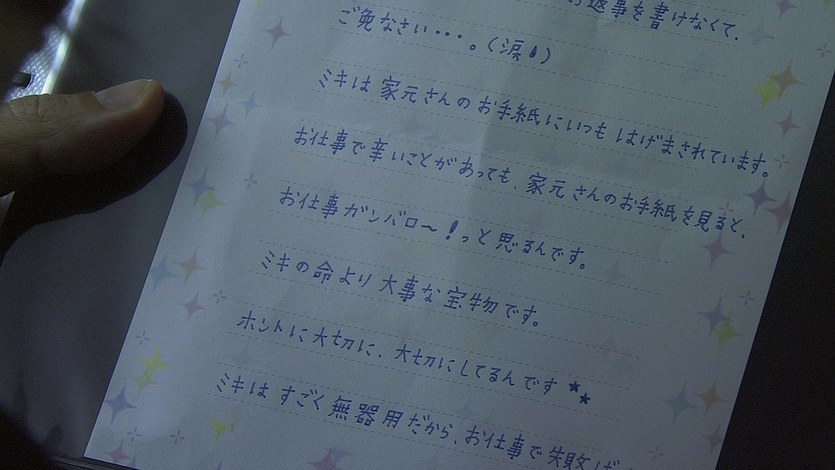 お返事を書けなくて、
ご免なさい・・・。(涙)
ミキは家元さんのお手紙にいつもはげまされています。
お仕事で辛いことがあっても、家元さんのお手紙を見ると、
お仕事ガンバロ〜!っと思るんです。
ミキの命より大事な宝物です。
ホントに大切に、大切にしてるんです**
ミキはすごく無器用だから、お仕事で失敗ば